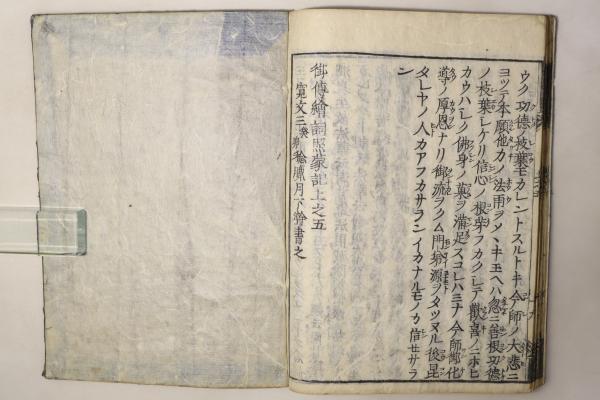 ウク功徳ノ枝葉モカレントスルトキ今師ノ大悲ニ
ヨツテ本願他力ノ法雨ヲソヽキ玉ヘハ忽ニ善根功徳
ノ枝葉シケリ信心ノ根柴フカクシテ歓喜ノニホヒ
カウハシク佛身ノ菓ヲ満足スコレハミナ今師御化
導ノ厚恩ナリ御流ヲクム門搦源ヲタツヌル後昆
タレヤノ人カアフカサラン イカナルモノカ信セサラ
ン
御傳繪詞照蒙記上之五
寛文三癸卯稔臘月下澣書之